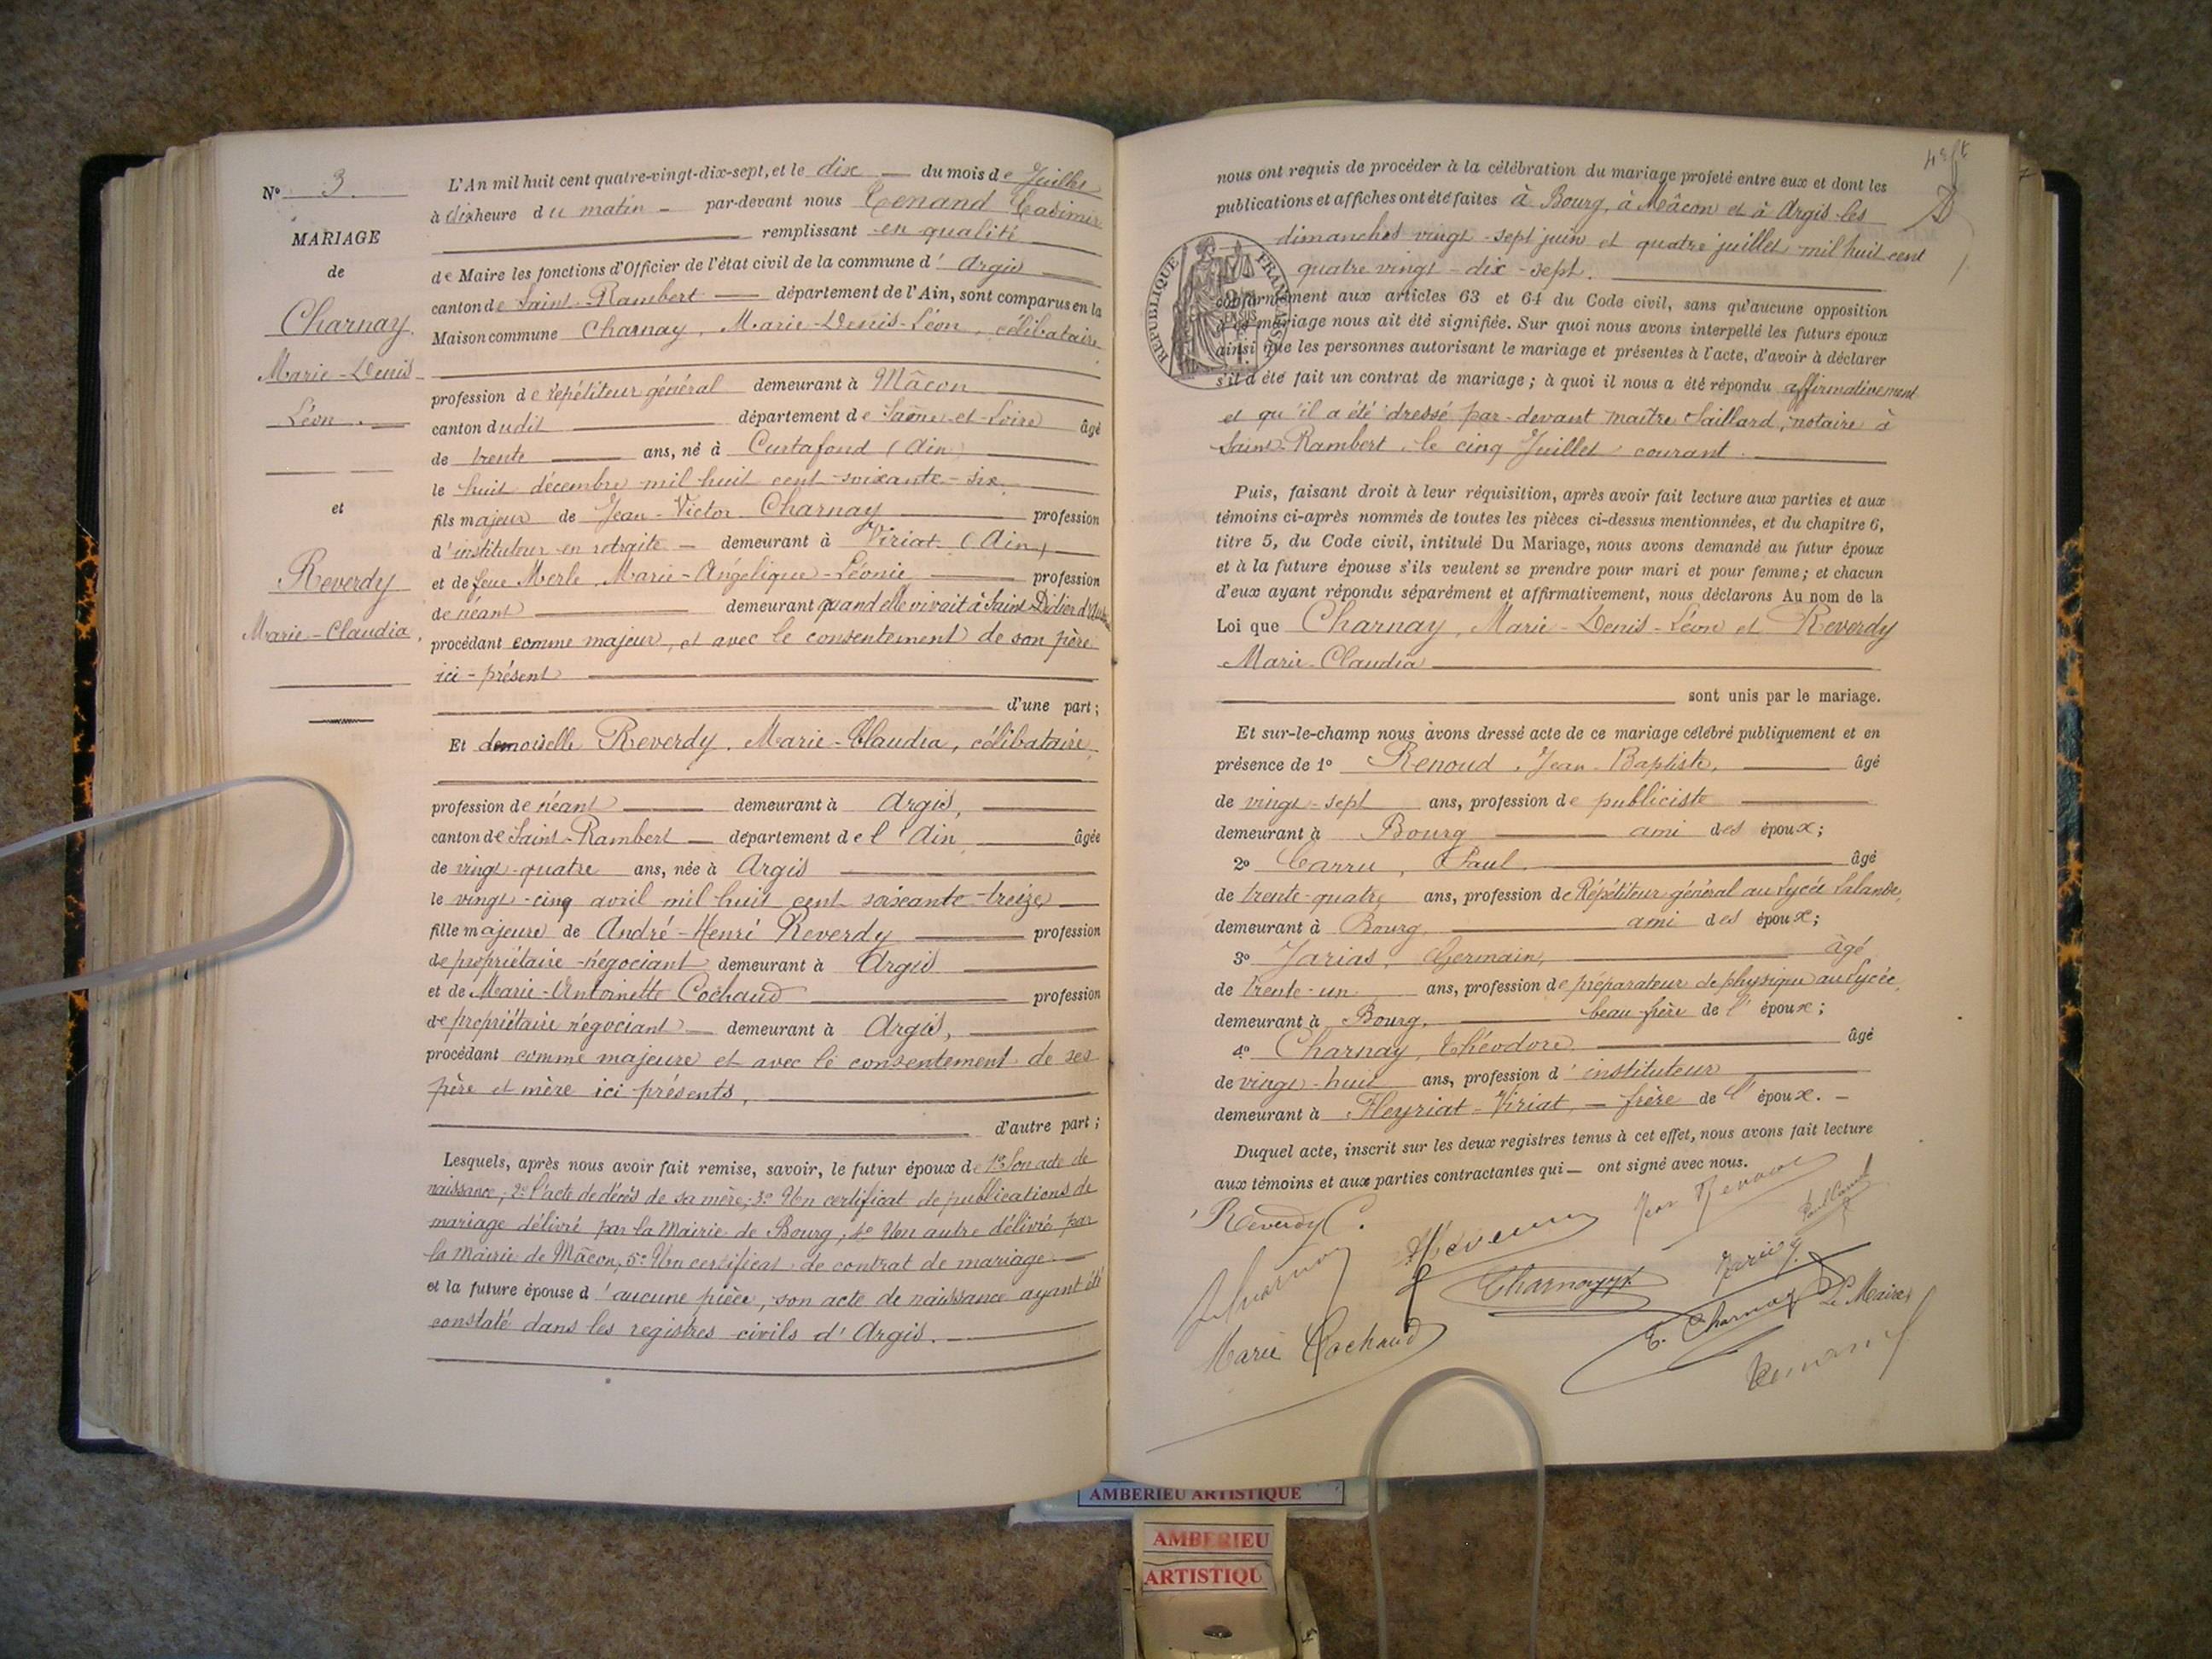 N° 3.
MARIAGE
de
Charnay
Marie-Denis
Léon.
et
Reverdy
Marie-Claudia,
L'An mil huit cent quatre-vingt-dix-sept, et le dix du mois de Juillet
à dix heure du matin par-devant nous Tenand Casimir
remplissant en qualité
de Maire les fonctions d'Officier de l'état civil de la commune d'Argis
canton de Saint-Rambert département de l'Ain, sont comparus en la
Maison commune Charnay, Marie-Denis-Léon, célibataire
profession de répétiteur général demeurant à Mâcon
canton dudit département de Saône-et-Loire âgé
de trente ans, né à Curtafond (Ain)
le huit décembre mil huit cent soixante-six
fils majeur de Jean-Victor Charnay profession
d'instituteur en retraite demeurant à Viriat (Ain)
et de feue Merle Marie-Angélique-Léonie profession
de néant demeurant quand elle vivait à Saint-Didier
procédant comme majeur, et avec le consentement de son père
ici-présent
d'une part;
Et demoiselle Reverdy, Marie-Claudia, célibataire
profession de néant demeurant à Argis,
canton de Saint-Rambert département de l'Ain âgée
de vingt-quatre ans, née à Argis
le vingt-cinq avril mil huit cent soixante-treize
fille majeure de André-Henri Reverdy profession
de propriétaire-négociant demeurant à Argis
et de Marie-Antoinette Cochaud profession
de propriétaire négociant demeurant à Argis,
procédant comme majeure et avec le consentement de ses
père et mère ici présents,
d'autre part;
Lesquels, après nous avoir fait remise, savoir, le futur époux de 1° Son acte de
naissance; 2° l'acte de décès de sa mère; 3° Un certificat de publications de
mariage délivré par la Mairie de Bourg; 4° Un autre délivré par
la Mairie de Mâcon; 5° Un certificat de contrat de mariage
et la future épouse d'aucune pièce, son acte de naissance ayant été
constaté dans les registres civils d'Argis.
nous ont requis de procéder à la célébration du mariage projeté entre eux et dont les
publications et affiches ont été faites à Bourg, à Mâcon et à Argis les
dimanches vingt-sept juin et quatre juillet mil huit cent
quatre vingt-dix-sept.
RÉPUBLIQUE FRANÇAISE
conformément aux articles 63 et 64 du Code civil, sans qu'aucune opposition
à ce mariage nous ait été signifiée. Sur quoi nous avons interpellé les futurs époux
ainsi que les personnes autorisant le mariage et présentes à l'acte, d'avoir à déclarer
s'il a été fait un contrat de mariage; à quoi il nous a été répondu affirmativement
et qu'il a été dressé par-devant maître Saillard, notaire à
Saint-Rambert, le cinq Juillet courant.
Puis, faisant droit à leur réquisition, après avoir fait lecture aux parties et aux
témoins ci-après nommés de toutes les pièces ci-dessus mentionnées, et du chapitre 6,
titre 5, du Code civil, intitulé Du Mariage, nous avons demandé au futur époux
et à la future épouse s'ils veulent se prendre pour mari et pour femme; et chacun
d'eux ayant répondu séparément et affirmativement, nous déclarons Au nom de la
Loi que Charnay, Marie-Denis-Léon et Reverdy
Marie-Claudia
sont unis par le mariage.
Et sur-le-champ nous avons dressé acte de ce mariage célébré publiquement et en
présence de 1° Renoud, Jean-Baptiste, âgé
de vingt-sept ans, profession de publiciste
demeurant à Bourg ami des époux;
2° Carru, Paul âgé
de trente-quatre ans, profession de Répétiteur général au Lycée Lalande,
demeurant à Bourg ami des époux;
3° Jarias, Germain, âgé
de trente-un ans, profession de préparateur de physique au Lycée,
demeurant à Bourg, beau-frère de l'époux;
4° Charnay, Théodore âgé
de vingt-huit ans, profession d'instituteur
demeurant à Fleyriat-Viriat, frère de l'époux.
Duquel acte, inscrit sur les deux registres tenus à cet effet, nous avons fait lecture
aux témoins et aux parties contractantes qui ont signé avec nous.
Reverdy C.
Jean Renoud
Charnay
Charnay
T. Charnay
Le Maire
Marie Cochaud
Tenand
AMBERIEU ARTISTIQUE
AMBERIEU
ARTISTIQU